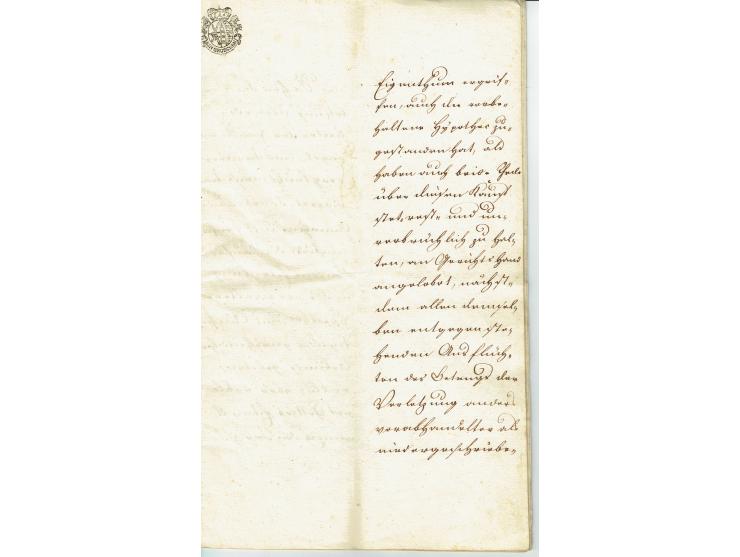 Eigenthum ergrif-
fen, auch die vorbe-
haltene Hypothec zu-
gestanden hat, als
haben auch beide Theile
über diesen Kauf
stet, vest- und un-
verbrüchlich zu hal-
ten, an Gerichts Hand
angelobet, nächst-
dem allen demsel-
ben entgegen ste-
henden Ausflüch-
ten des Betrugs der
Verletzung anders
verabhandelter als
niedergeschriebe-